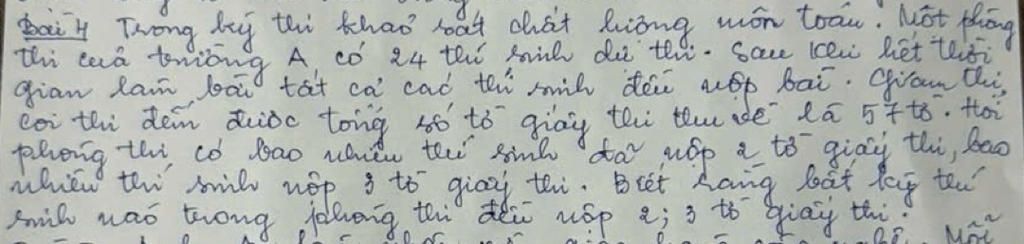 Bài 4 Trong kỳ thi khảo sát chất lượng môn toán. Một phòng
thi của trường A có 24 thí sinh dự thi. Sau khi hết thời
gian làm bài tất cả các thí sinh đều nộp bài. Giám thị
coi thi đếm được tổng số tờ giấy thi thu về là 57 tờ. Hỏi
phòng thi có bao nhiêu thí sinh đã nộp 2 tờ giấy thi, bao
nhiêu thí sinh nộp 3 tờ giấy thi. Biết rằng bất kỳ thí
sinh nào trong phòng thi đều nộp 2; 3 tờ giấy thi.
Mỗi